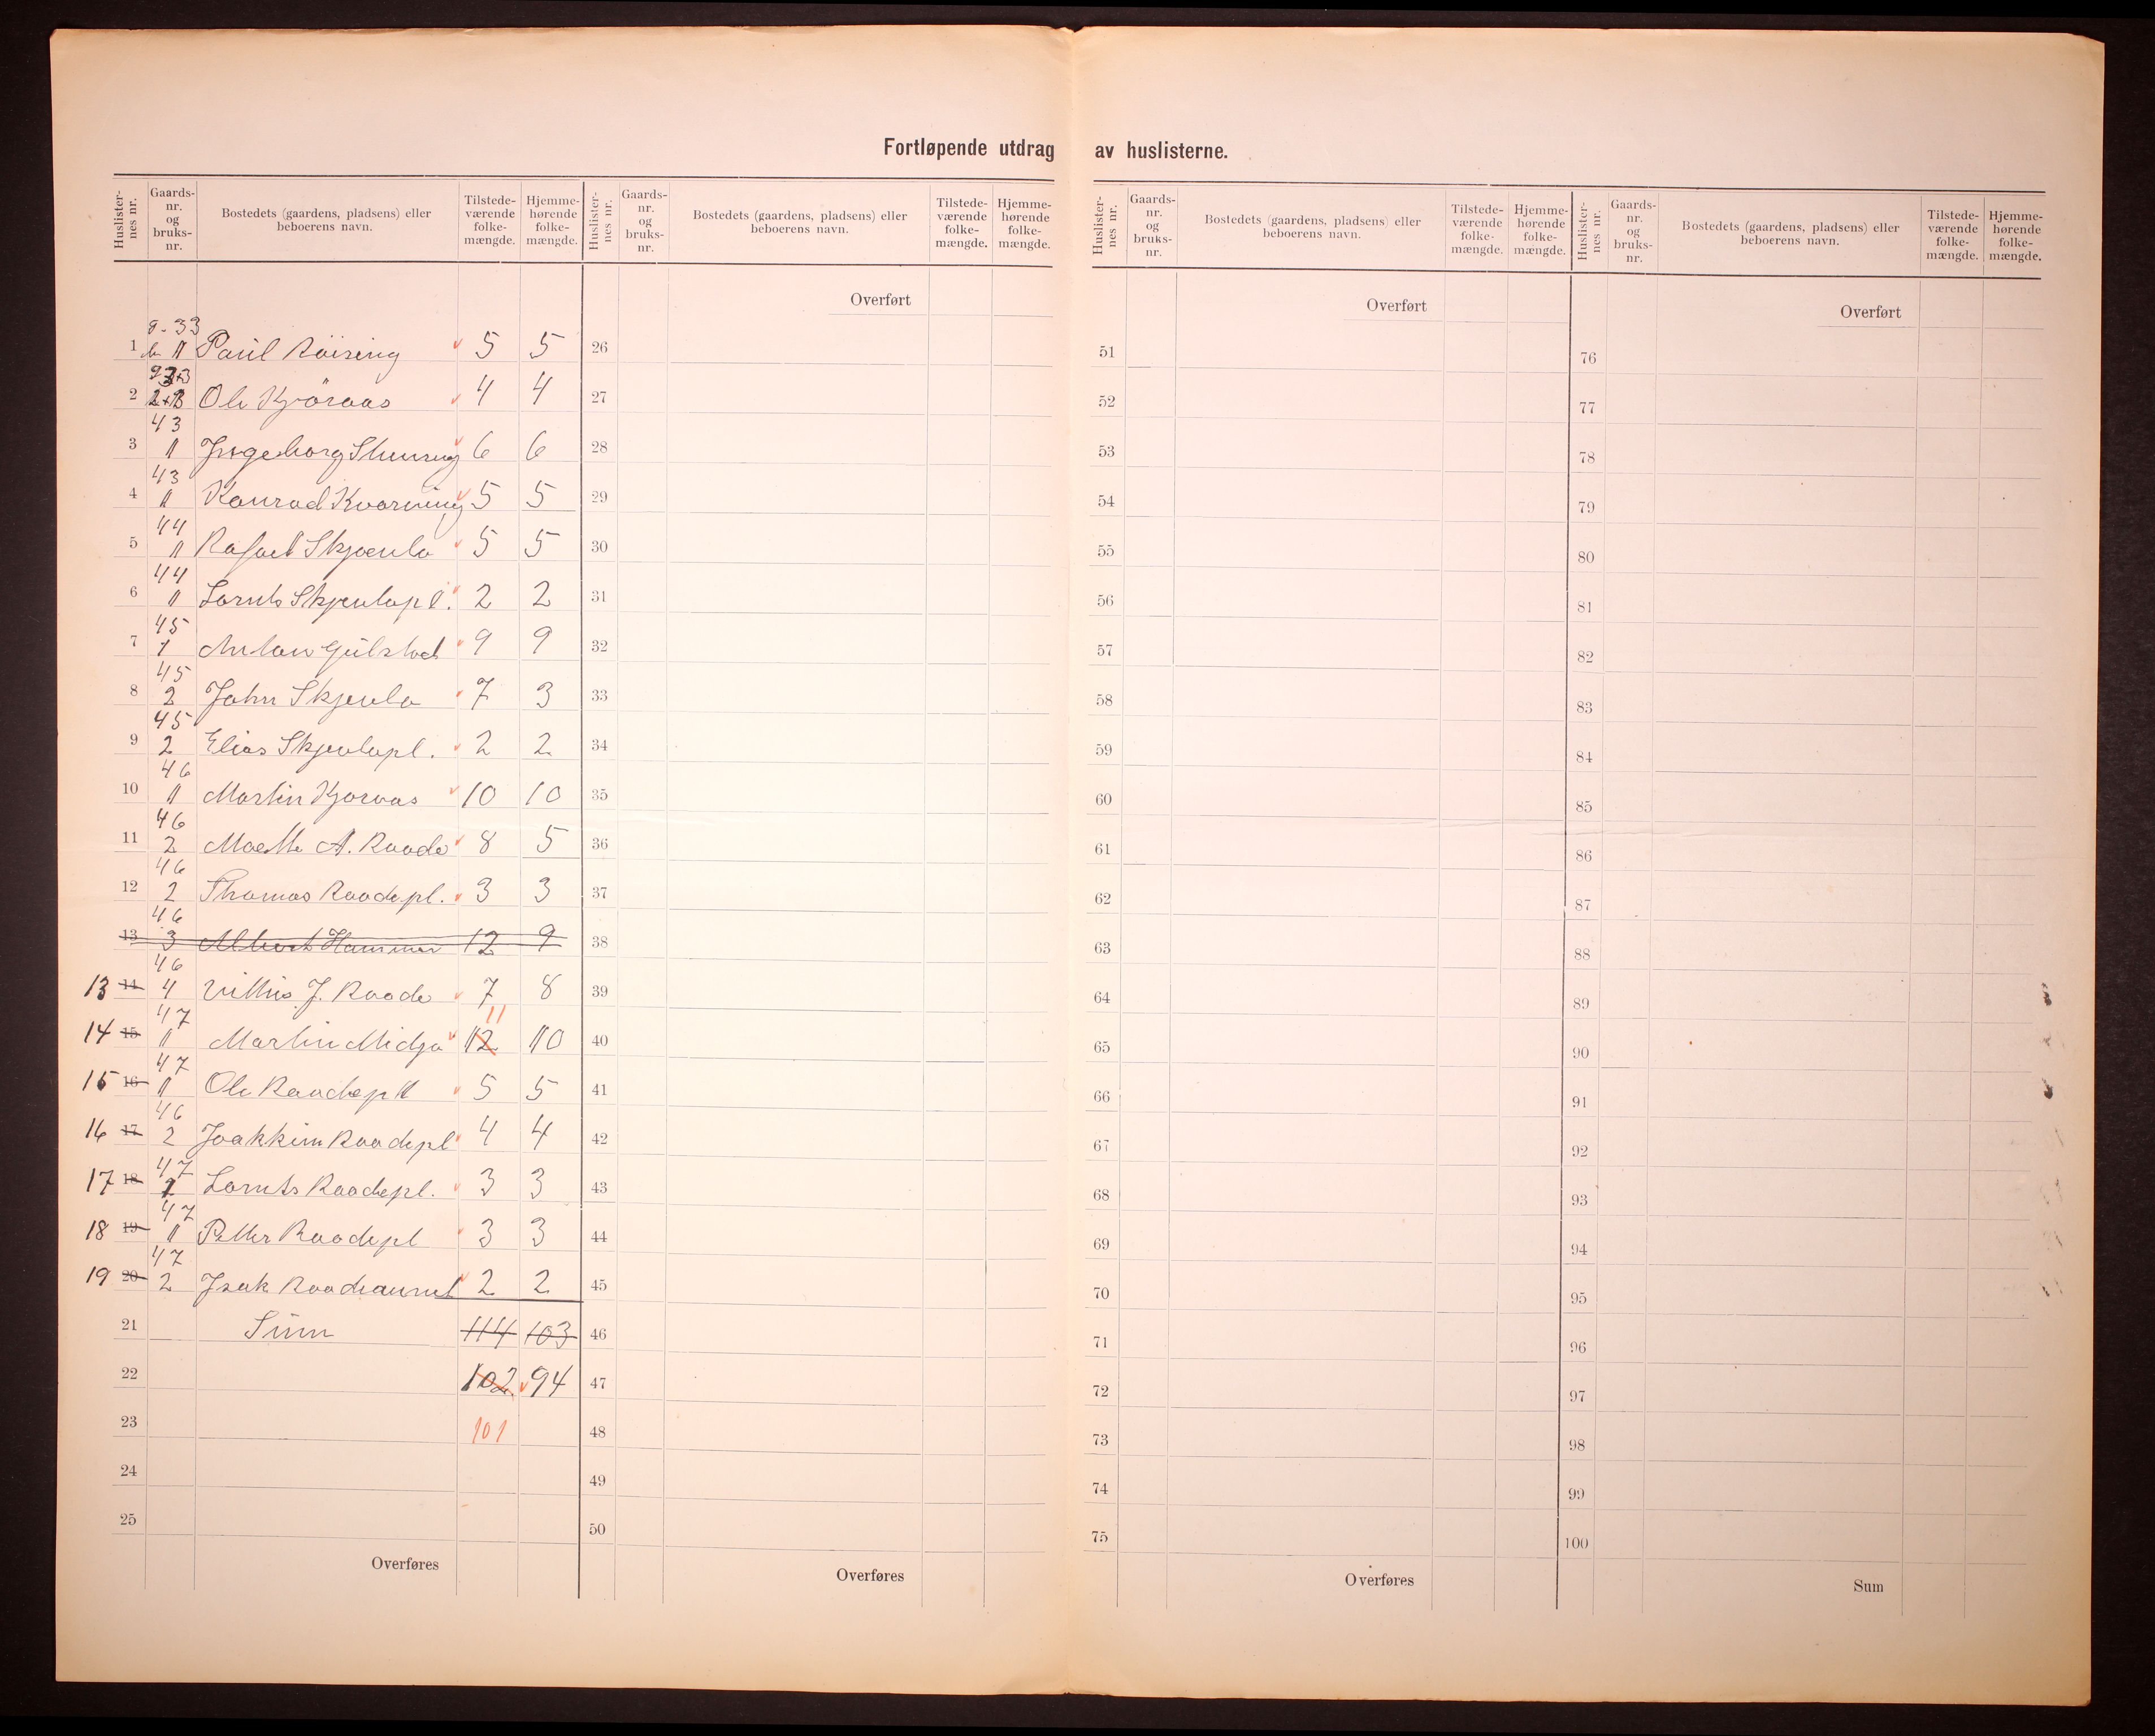 Fortløpende utdrag av huslisterne.
Huslisternes nr. Gaardsnr. og bruksnr. Bostedets (gaardens, pladsens) eller beboerens navn. Tilstedeværende folkemængde. Hjemmehørende folkemængde.
Huslisternes nr. Gaardsnr. og bruksnr. Bostedets (gaardens, pladsens) eller beboerens navn. Tilstedeværende folkemængde. Hjemmehørende folkemængde.
Huslisternes nr. Gaardsnr. og bruksnr. Bostedets (gaardens, pladsens) eller beboerens navn. Tilstedeværende folkemængde. Hjemmehørende folkemængde.
Huslisternes nr. Gaardsnr. og bruksnr. Bostedets (gaardens, pladsens) eller beboerens navn. Tilstedeværende folkemængde. Hjemmehørende folkemængde.
Overført Overført Overført
g. 33
1 b 1 Paul Röising 5 5
2 Ole Kjöraas 4 4
43
3 1 Ingeborg 6 6
43
4 1 Konrad Kvarving 5 5
44
5 1 Rafael Skjenla 5 5
44
6 1 Lornts Skjenlapl. 2 2
45
7 1 Anton Gulstad 9 9
45
8 2 John Skjenla 7 3
45
9 2 Elias Skjenlapl. 2 2
46
10 1 Martin Kjoraas 10 10
46
11 2 A. Raade 8 5
46
12 2 Thomas Raadepl. 3 3
46
13 3 Albert Hammer 12 9
46
13 14 4 J. Raade 7 8
47 11
14 15 1 Martin Midja 12 10
47
15 16 1 Ole Raadepl 5 5
46
16 17 2 Joakkim Raadepl 4 4
47
17 18 1 Lornts Raadepl. 3 3
47
18 19 1 Petter Raadepl 3 3
47
19 20 2 Isak 2 2
21 Sum 114 103
22 102 94
23 101
24
25
Overføres
26
27
28
29
30
31
32
33
34
35
36
37
38
39
40
41
42
43
44
45
46
47
48
49
50
Overføres
51
52
53
54
55
56
57
58
59
60
61
62
63
64
65
66
67
68
69
70
71
72
73
74
75
Overføres
76
77
78
79
80
81
82
83
84
85
86
87
88
89
90
91
92
93
94
95
96
97
98
99
100
Sum